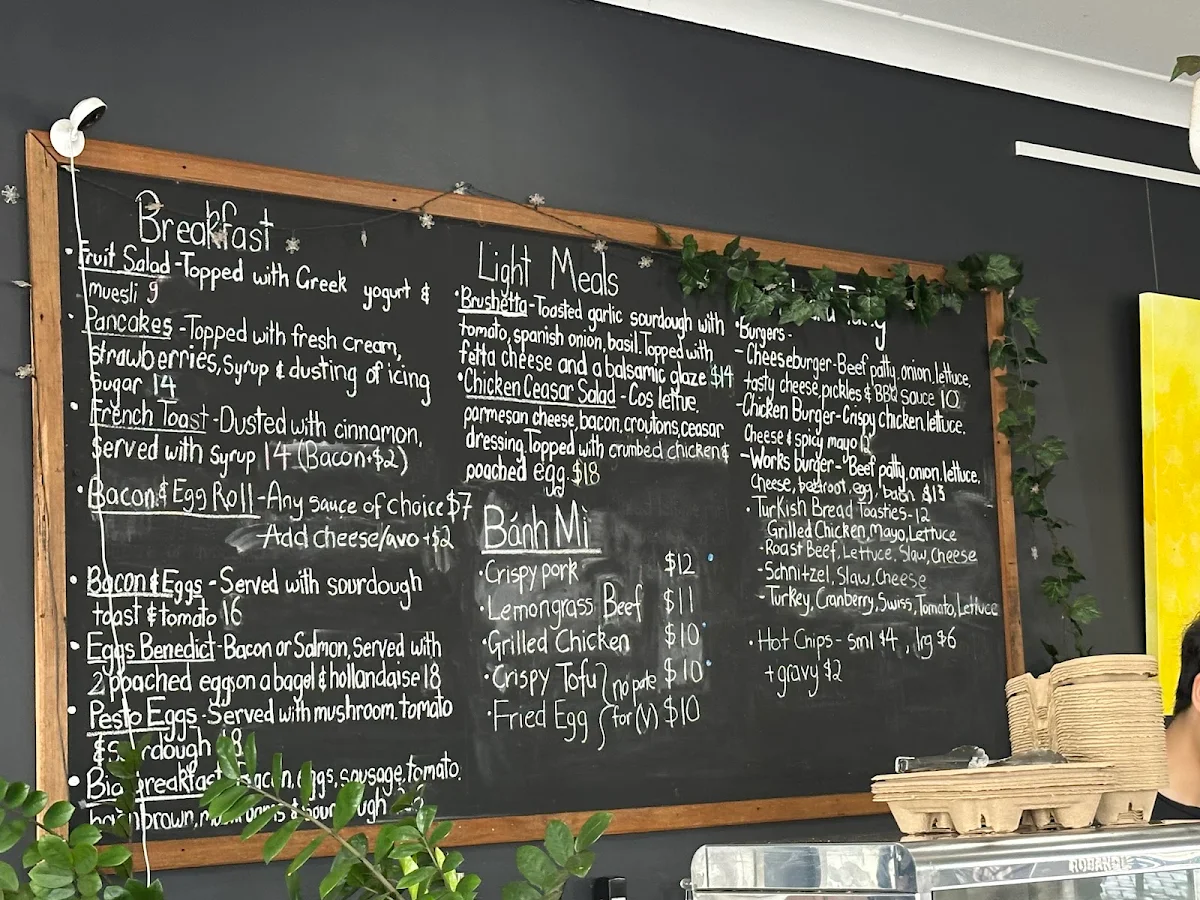 Breakfast
• Fruit Salad - Topped with Greek yogurt &
muesli 9
• Pancakes - Topped with fresh cream,
strawberries, Syrup & dusting of icing
sugar 14
• French Toast - Dusted with cinnamon,
served with syrup 14 (Bacon +$2)
• Bacon & Egg Roll - Any sauce of choice $7
- Add cheese/avo +$2
• Bacon & Eggs - Served with sourdough
toast & tomato 16
• Eggs Benedict - Bacon or Salmon, Served with
2 poached eggs on a bagel & hollandaise 18
• Pesto Eggs - Served with mushroom, tomato
& sourdough 18
• Big breakfast - Bacon, eggs, sausage, tomato,
hashbrown, mushrooms & sourdough
Light Meals
• Brushetta - Toasted garlic sourdough with
tomato, spanish onion, basil. Topped with
fetta cheese and a balsamic glaze $14
• Chicken Ceasar Salad - Cos lettue,
parmesan cheese, bacon, croutons, ceasar
dressing. Topped with crumbed chicken &
poached egg. $18
Bánh Mì
• Crispy pork $12
• Lemongrass Beef $11
• Grilled Chicken $10
• Crispy Tofu } no pate $10
• Fried Egg { for (V) $10
• Burgers -
- Cheeseburger - Beef patty, onion, lettuce,
tasty cheese, pickles & BBQ sauce 10
- Chicken Burger - Crispy chicken, lettuce,
Cheese & spicy mayo 12
- Works burger - Beef patty, onion, lettuce,
Cheese, beetroot, egg, bacn $13
• Turkish Bread Toasties - 12
Grilled Chicken, Mayo, Lettuce
- Roast Beef, Lettuce, Slaw, Cheese
- Schnitzel, Slaw, Cheese
- Turkey, Cranberry, Swiss, Tomato, Lettuce
• Hot Chips - sml $4 , lrg $6
+ gravy $2